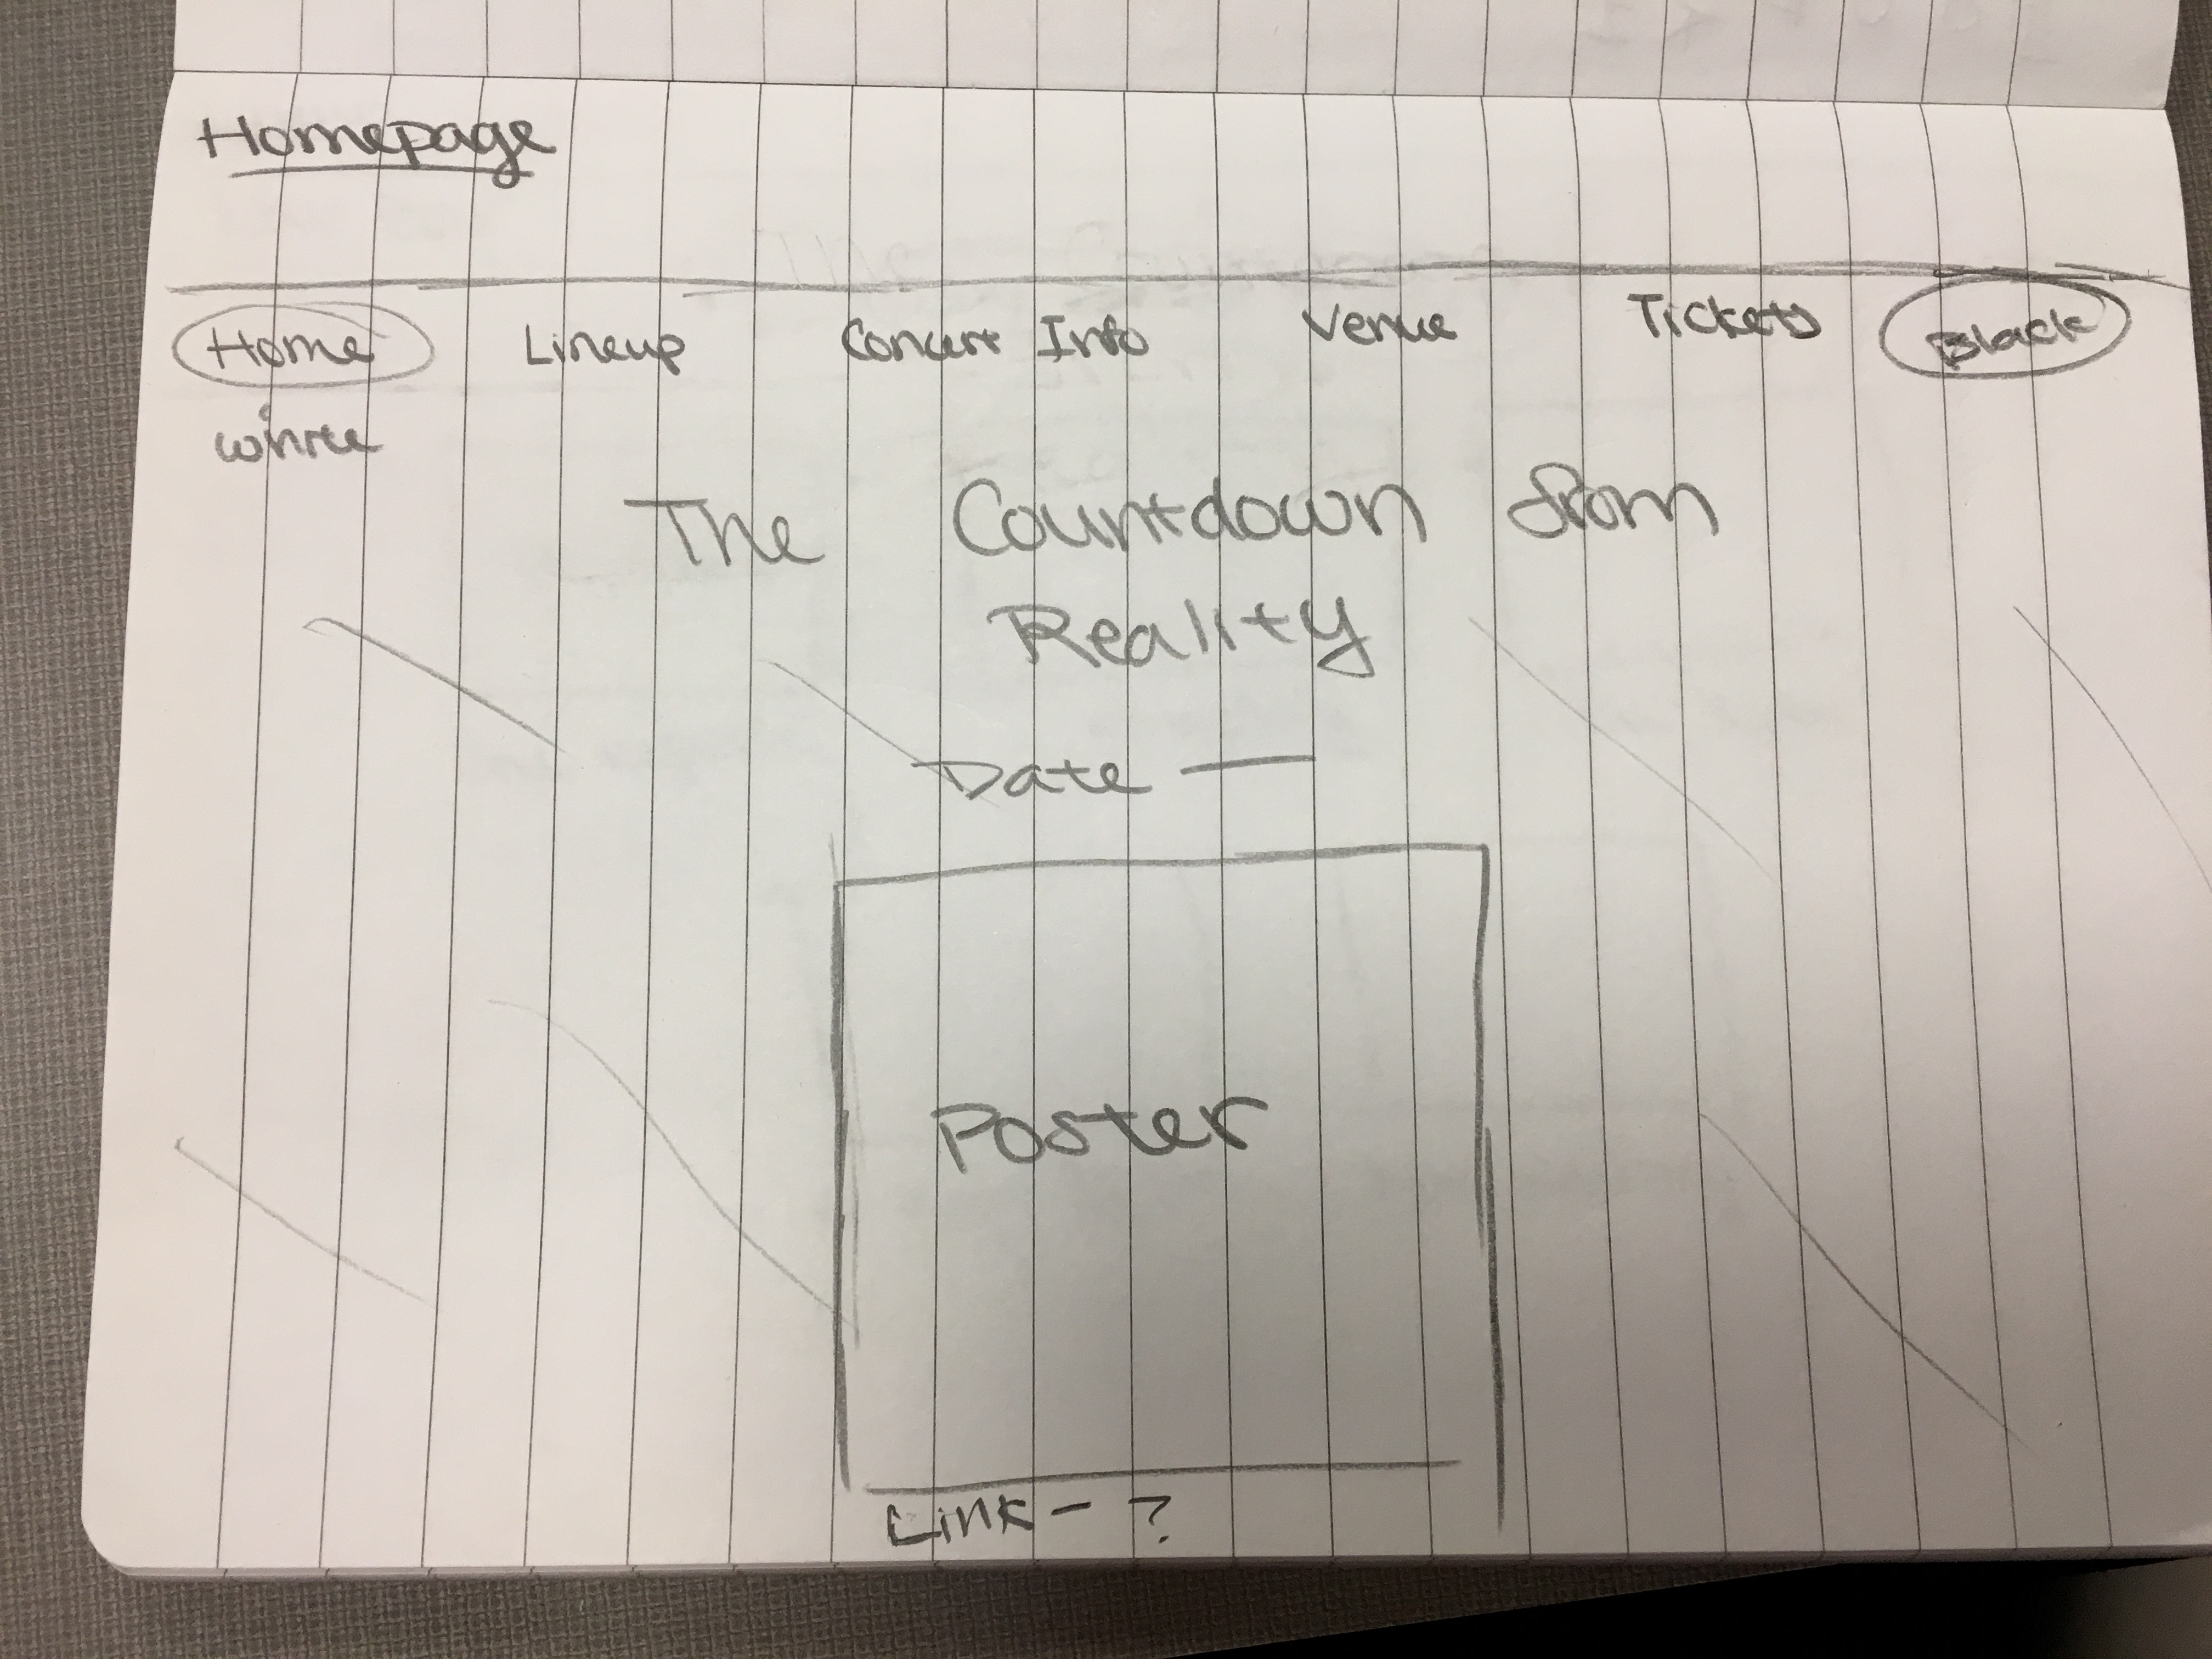 Homepage
Home Lineup Concert Info Venue Tickets Black
white
The Countdown from
Reality
Date —
Poster
Link - ?